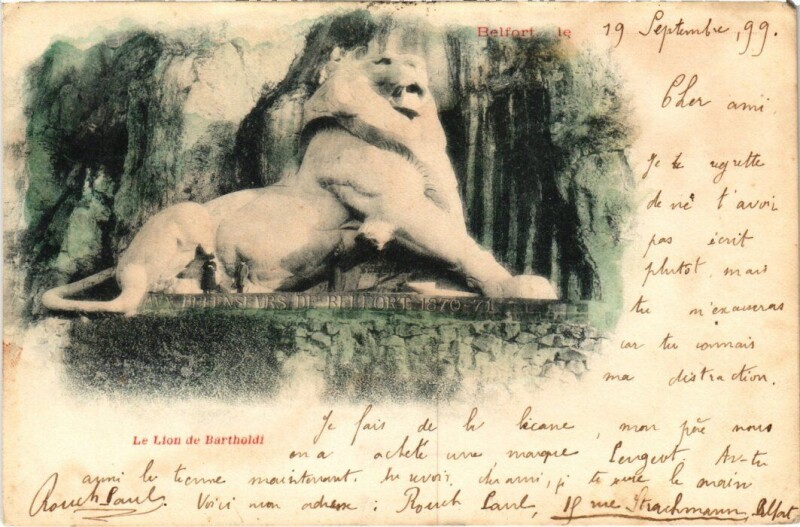 Belfort le 19 Septembre, 99.
Cher ami
Je te regrette
de ne t'avoir
pas écrit
plutot, mais
tu m'excuseras
car tu connais
ma distraction.
AUX DEFENSEURS DE BELFORT 1870-71
Le Lion de Bartholdi
Je fais de la bicane, mon père nous
en a acheté une marque Peugeot. As-tu
aussi la tienne maintenant. Au revoir, cher ami, je te serre la main
Rouch Paul. Voici mon adresse : Rouch Paul, 18 rue Strachmann, Belfort